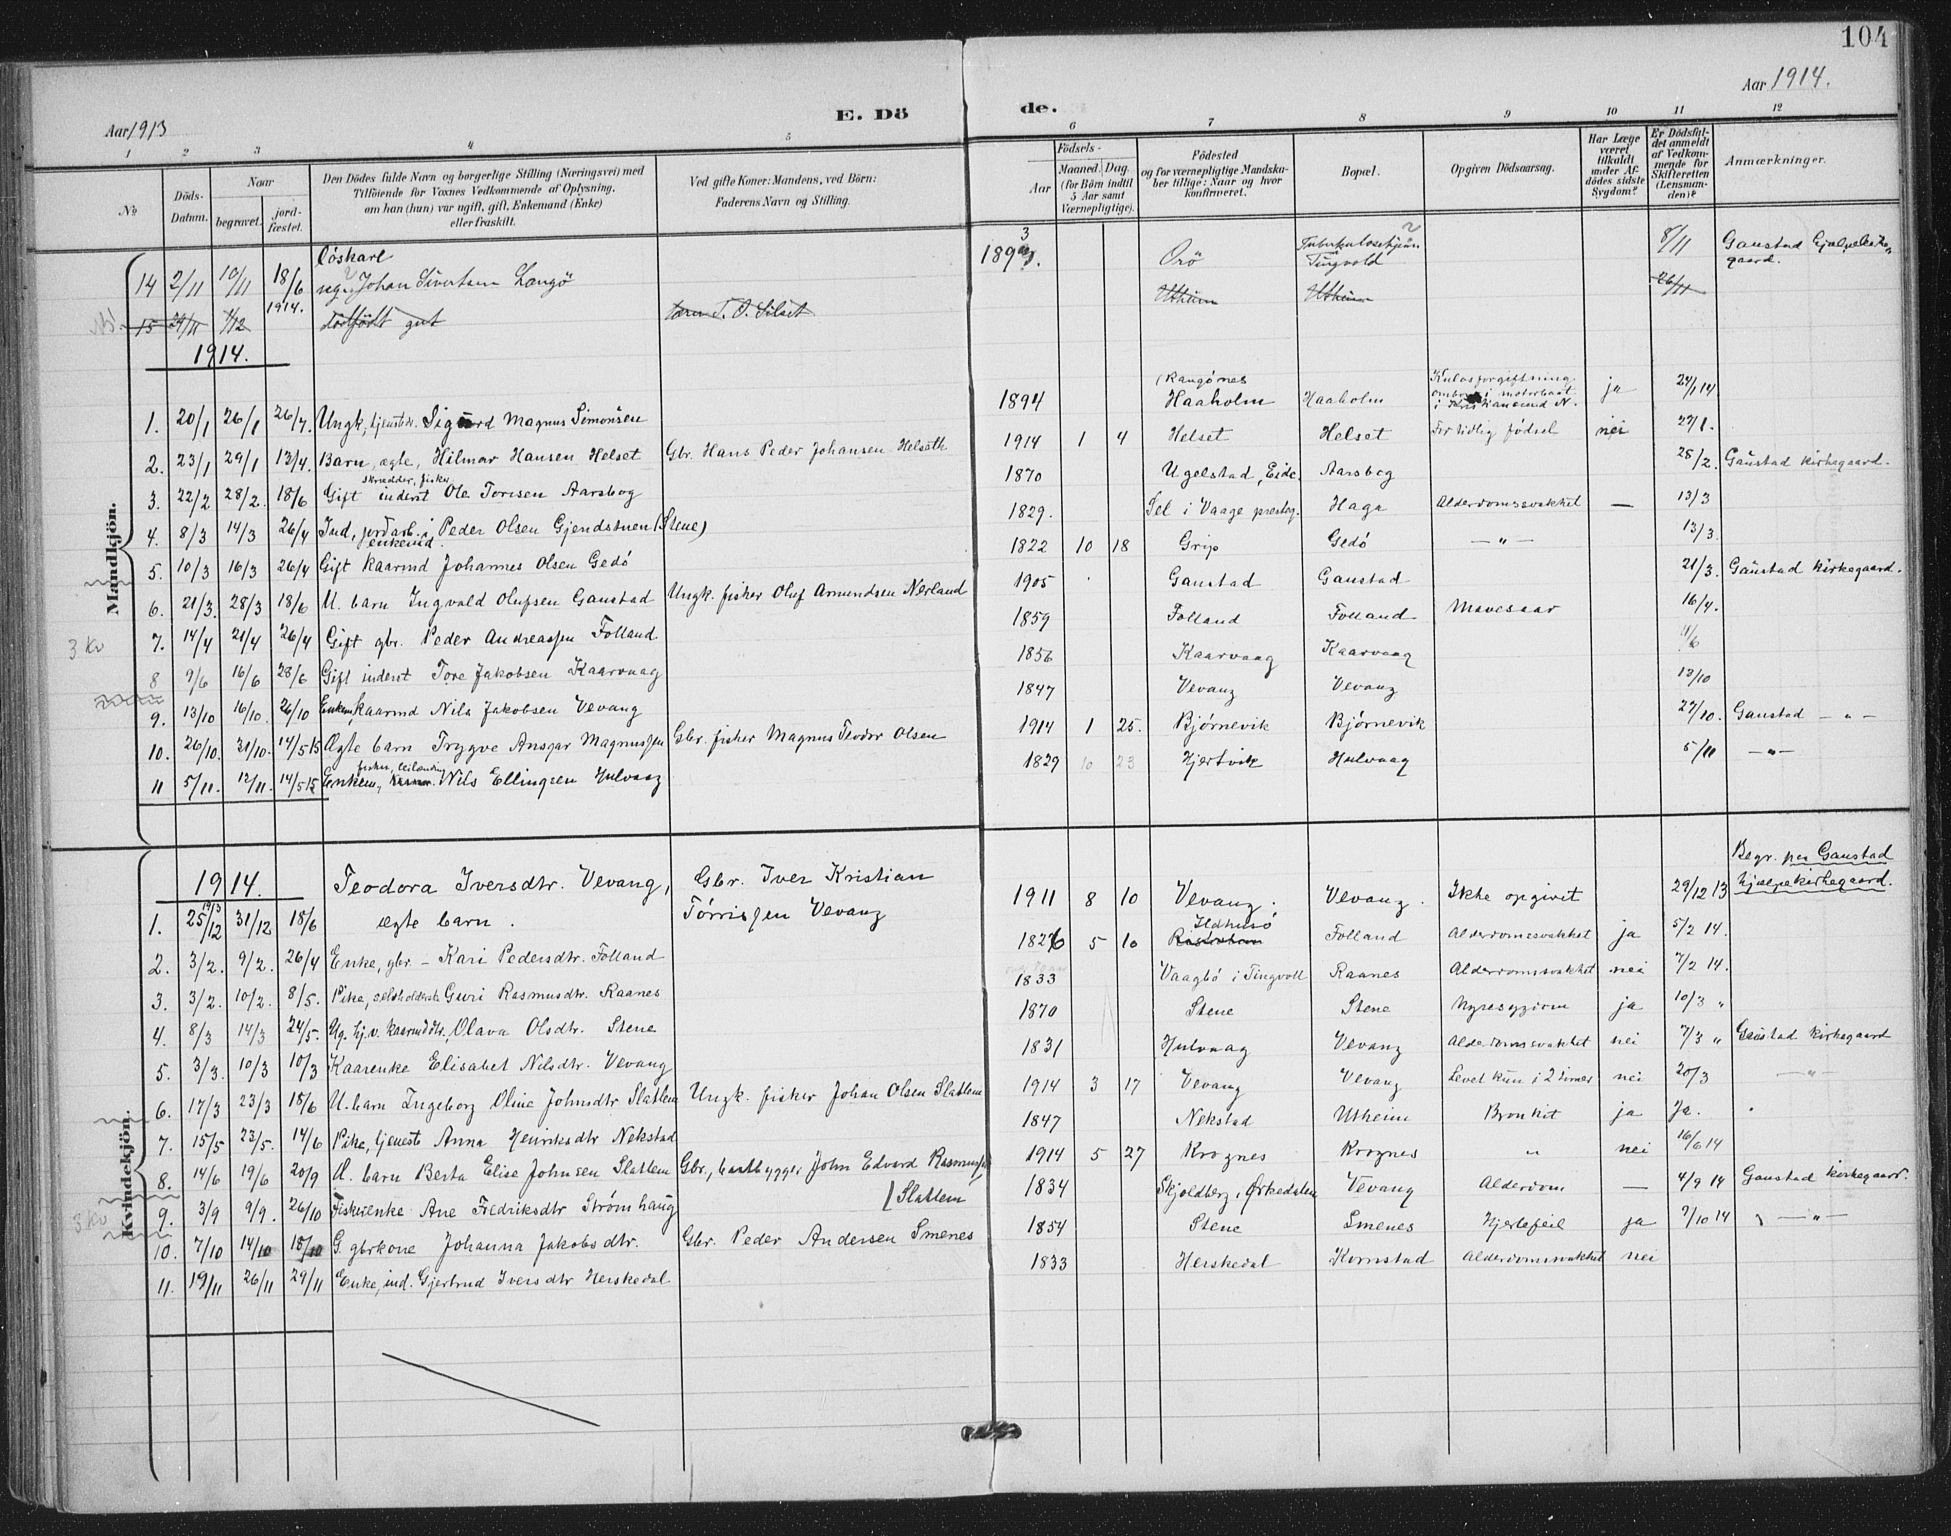 104
Aar 1913
E. Dö
de.
Aar 1914.
1 2 3 4 5 6 7 8 9 10 11 12
No Döds-Datum. Naar begravet. jord-fæstet. Den Dödes fulde Navn og borgerlige Stilling (Næringsvei) med Tilföiende for Voxnes Vedkommende af Oplysning, om han (hun) var ugift, gift, Enkemand (Enke) eller fraskilt. Ved gifte Koner: Mandens, ved Börn: Faderens Navn og Stilling. Födsels- Aar Maaned. Dag. (for Börn indtil 5 Aar samt Værnepligtige). Födested og for værnepligtige Mandskaber tillige: Naar og hvor konfirmeret. Bopæl. Opgiven Dödsaarsag. Har Læge været tilkaldt under Afdödes sidste Sygdom? Er Dödsfaldet anmeldt af Vedkommende for Skifteretten (Lensmanden)? Anmærkninger.
Mandkjön.
Löskarl
14 2/11 10/11 18/6 1914. Johan Sivertsen Langö Orö Tingvold 8/11 Gaustad
15 29/11 Dödfödt gut T. O. Silset Utheim Utheim 26/11
1914.
1. 20/1 26/1 26/4. Ungk, tjenestedr. Sigurd Magnus Simonsen 1894 (Rangönes Haaholm Haaholm Kulosforgiftning ombord i motorbaat i Kristiansund N. ja 24/1 14
2. 23/1 29/1 13/4. Barn, ægte, Hilmar Hansen Helset Gbr. Hans Peder Johansen Helseth 1914 1 4 Helset Helset For tidlig födsel nei 27/1.
3. 22/2 28/2. 18/6 Gift skrædder, fisker inderst Ole Toresen Aarsbog 1870 Ugelstad, Eide. Aarsbog 28/2. Gaustad kirkegaard.
4. 8/3 14/3 26/4 Ind, jordarb. enkemd. Peder Olsen Gjendstuen (Stene) 1829. Sel i Vaage prestegj. Haga Alderdomssvakhet — 13/3
5. 10/3 16/3 26/4 Gift kaarmd Johannes Olsen Gedö 1822 10 18 Grip Gedö — " — 13/3.
6. 21/3. 28/3 18/6 U. barn Ingvald Olufsen Gaustad Ungk. fisker Oluf Amundsen Nerland 1905 Gaustad Gaustad 21/3. Gaustad kirkegaard.
3 kv 7. 14/4 21/4 26/4 Gift gbr. Peder Andreassen Folland 1859 Folland Folland Mavesaar 16/4.
8 9/6 16/6 28/6 Gift inderst Tore Jakobsen Kaarvaag 1856 Kaarvaag Kaarvaag 11/6
9. 13/10 16/10. 26/10 Enkem, kaarmd Nils Jakobsen Vevang 1847 Vevang Vevang 13/10
10. 26/10. 31/10. 14/5 15 Ægte barn Trygve Ansgar Magnussen Gbr. fisker Magnus Teodor Olsen 1914 1 25. Bjørnevik Bjørnevik 27/10. Gaustad — " —
11 5/11. 12/11. 14/5 15 Enkem, fisker, leilænding Nils Ellingsen Hulvaag 1829 10 23 Hjertvik Hulvaag 5/11 — " —
Kvindekjön.
1914.
1. 1913 25/12 31/12 18/6 Teodora Iversdtr. Vevang, ægte barn. Gbr. Iver Kristian Tørrissen Vevang 1911 8 10 Vevang. Vevang. Ikke opgivet 29/12 13 Begr. paa Gaustad hjælpekirkegaard.
2. 3/2. 9/2. 26/4 Enke, gbr – Kari Pedersdtr. Folland 1826 5 10 Ildhusö Folland Alderdomssvakhet ja 5/2 14.
3. 3/2. 10/2. 8/5. Pike, selvholderske Guri Rasmusdtr. Raanes 1833 Vaagbö i Tingvoll Raanes Alderdomssvakhet nei 7/2 14.
4. 8/3 14/3 24/5. Ug. hj.v. kaarmddtr, Olava Olsdtr. Stene 1870 Stene Stene Nyresygdom ja 10/3 "
5. 3/3. 10/3 10/3 Kaarenke Elisabet Nilsdtr. Vevang 1831 Hulvaag Vevang Alderdomssvakhet nei 7/3 " Gaustad kirkegaard
6. 17/3 23/3 18/6 U. barn Ingeborg Oline Johnsdtr Slatlem Ungk. fisker Johan Olsen Slatlem 1914 3 17 Vevang Vevang Levet kun i 2 timer nei 20/3 — " —
7. 15/5 23/5. 14/6 Pike, tjeneste Anna Henriksdtr Nekstad 1847 Nekstad Utheim Bronkit ja Ja.
8. 14/6 19/6 20/9 U. barn Berta Elise Johnsen Slatlem Gbr., baatbygger John Edvard Rasmussen (Slatlem 1914 5 27 Krognes Krognes " nei 16/6 14
3 kv 9. 3/9 9/9. 26/10 Fiskerenke Ane Fredriksdtr Strømhaug 1834 Skjoldberg, Ørkedalen Vevang Alderdom — 4/9 14 Gaustad kirkegaard.
10. 7/10 14/10 18/10 G. gbrkone Johanna Jakobsdtr. Gbr. Peder Andersen Smenes 1854 Stene Smenes Hjertefeil ja 7/10 14 — " —
11. 19/11 26/11 29/11 Enke, ind. Gjertrud Iversdtr Herskedal 1833 Herskedal Kornstad Alderdomssvakhet nei